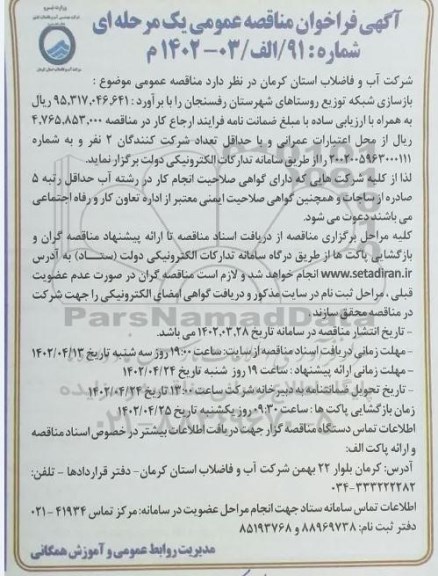 آگهی فراخوان مناقصه عمومی یک مرحله ای
شماره: ۹۱/الف/۰۳-۱۴۰۲ م
شرکت آب و فاضلاب استان کرمان در نظر دارد مناقصه عمومی موضوع :
بازسازی شبکه توزیع روستاهای شهرستان رفسنجان را با برآورد : ۹۵،۳۱۷،۰۴۶،۶۴۱ ریال
به همراه با ارزیابی ساده با مبلغ ضمانت نامه فرایند ارجاع کار در مناقصه ۴،۷۶۵،۸۵۳،۰۰۰
ریال از محل اعتبارات عمرانی و با حداقل تعداد شرکت کنندگان ۲ نفر و به شماره
۲۰۰۲۰۰۵۹۶۳۰۰۰۱۱۱ را از طریق سامانه تدارکات الکترونیکی دولت برگزار نماید.
لذا از کلیه شرکت هایی که دارای گواهی صلاحیت انجام کار در رشته آب حداقل رتبه ۵
صادره از ساجات و همچنین گواهی صلاحیت ایمنی معتبر از اداره تعاون کار و رفاه اجتماعی
می باشند دعوت می شود.
کلیه مراحل برگزاری مناقصه از دریافت اسناد مناقصه تا ارائه پیشنهاد مناقصه گران و
بازگشایی پاکت ها از طریق درگاه سامانه تدارکات الکترونیکی دولت (ستاد) به آدرس
www.setadiran.ir انجام خواهد شد و لازم است مناقصه گران در صورت عدم عضویت
قبلی ، مراحل ثبت نام در سایت مذکور و دریافت گواهی امضای الکترونیکی را جهت شرکت
در مناقصه محقق سازند.
- تاریخ انتشار مناقصه در سامانه تاریخ ۱۴۰۲،۰۳،۲۸ می باشد.
- مهلت زمانی دریافت اسناد مناقصه از سایت: ساعت ۱۹:۰۰ روز سه شنبه تاریخ ۱۴۰۲/۰۴/۱۳
- مهلت زمانی ارائه پیشنهاد : ساعت ۱۹ روز شنبه تاریخ ۱۴۰۲/۰۴/۲۴
- تاریخ تحویل ضمانتنامه به دبیرخانه شرکت ساعت ۱۳:۰۰ تاریخ ۱۴۰۲/۰۴/۲۴
زمان بازگشایی پاکت ها : ساعت ۰۹:۳۰ روز یکشنبه تاریخ ۱۴۰۲/۰۴/۲۵
اطلاعات تماس دستگاه مناقصه گزار جهت دریافت اطلاعات بیشتر در خصوص اسناد مناقصه
و ارائه پاکت الف:
آدرس: کرمان بلوار ۲۲ بهمن شرکت آب و فاضلاب استان کرمان- دفتر قراردادها - تلفن:
۰۳۴-۳۳۳۲۲۲۲۸۲
اطلاعات تماس سامانه ستاد جهت انجام مراحل عضویت در سامانه: مرکز تماس ۴۱۹۳۴ -۰۲۱
دفتر ثبت نام: ۸۸۹۶۹۷۳۸ و ۸۵۱۹۳۷۶۸
مدیریت روابط عمومی و آموزش همگانی